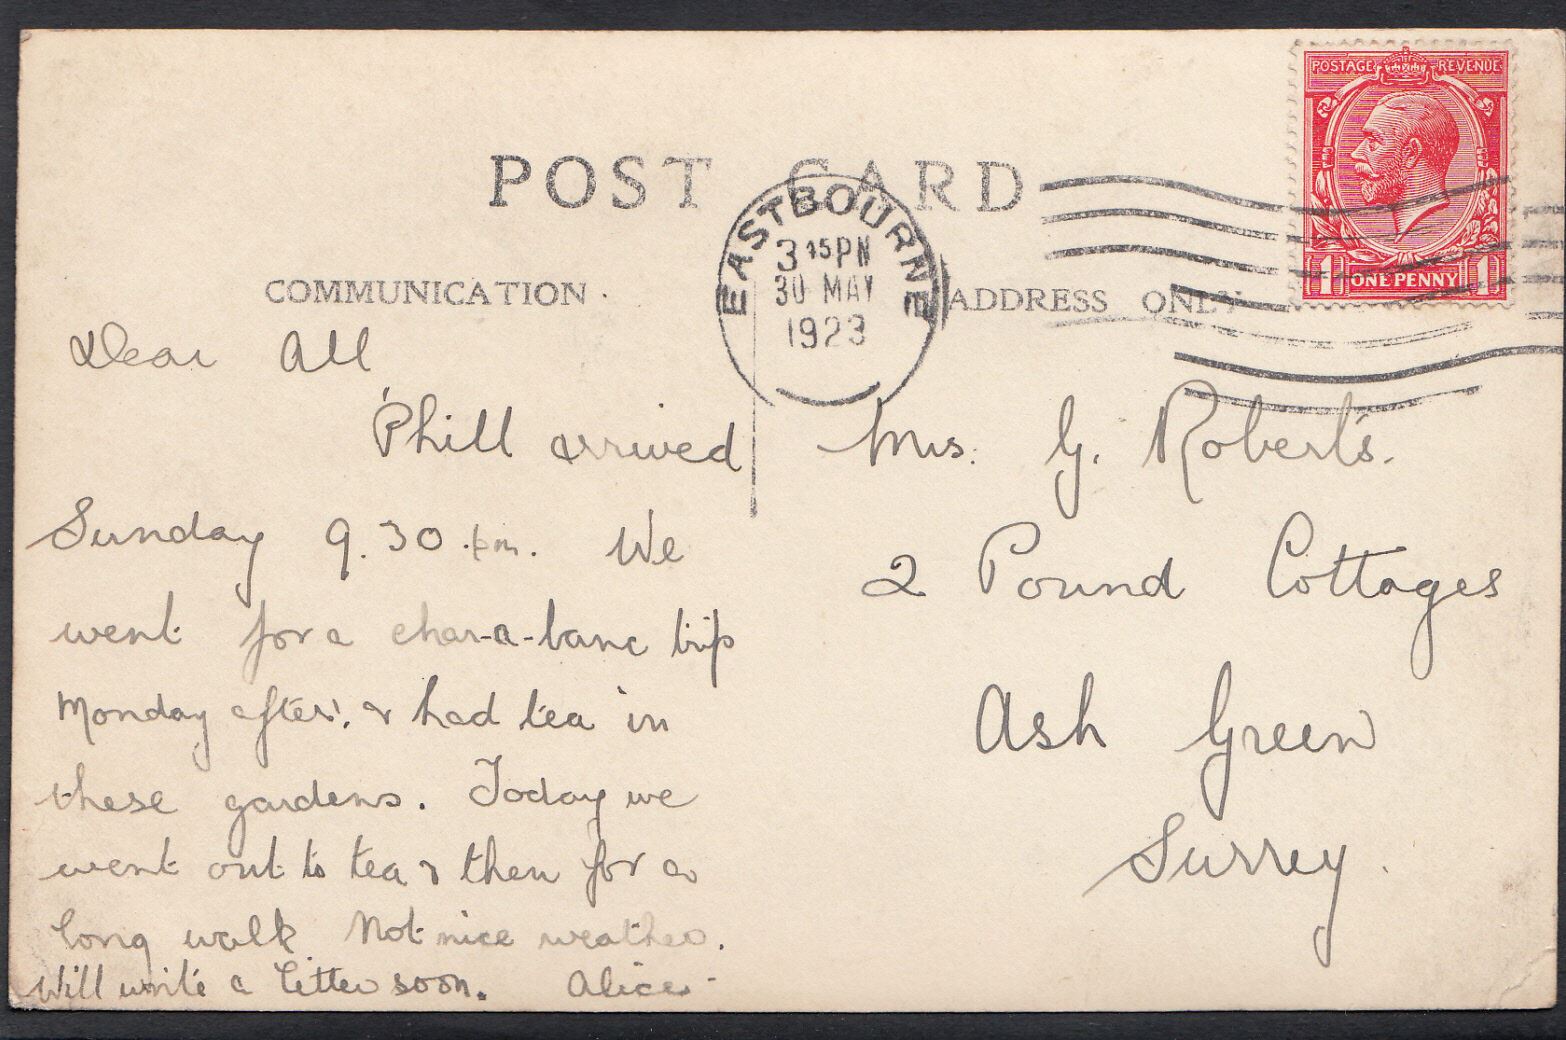 POST CARD
POSTAGE REVENUE
1 ONE PENNY 1
EASTBOURNE
3 15 PM
30 MAY
1923
COMMUNICATION
ADDRESS ONLY
Dear All
Phill arrived
Sunday 9.30 pm. We
went for a char-a-banc trip
Monday after. & had tea in
these gardens. Today we
went out to tea & then for a
long walk Not nice weather.
Will write a letter soon. Alice
Mrs. G. Roberts.
2 Pound Cottages
Ash Green
Surrey.